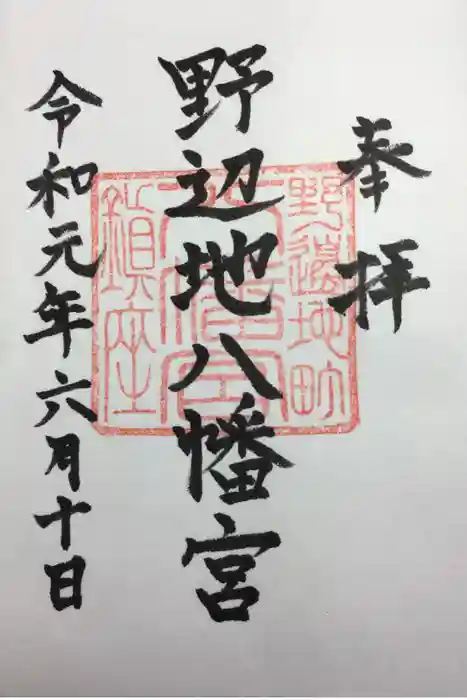 奉拝
野辺地八幡宮
令和元年六月十日
野邊地町
八幡宮
鎮座